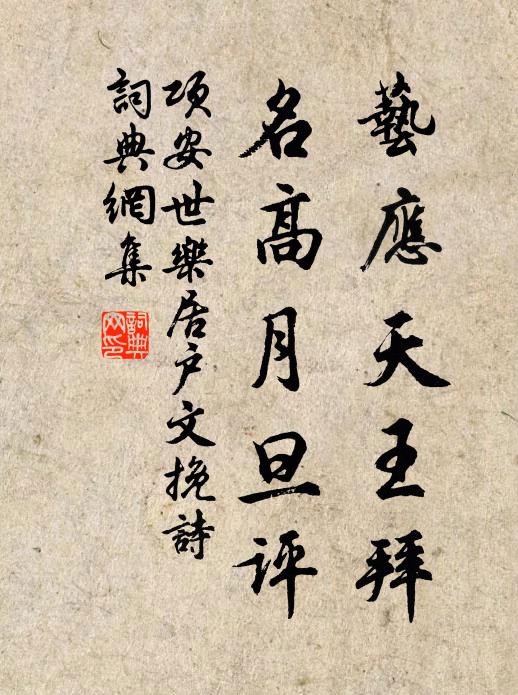 藝應天王拜
名高月旦評
項安世樂居戶文挽詩
詞典網集
詞典
网印